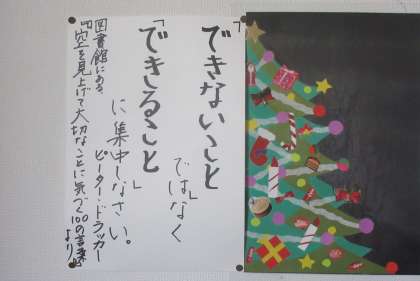 「できないこと」
ではなく
「できること」
に集中しなさい。
ピーター・ドラッカー
図書館にある
『空を見上げて大切なことに気づく100の言葉』より